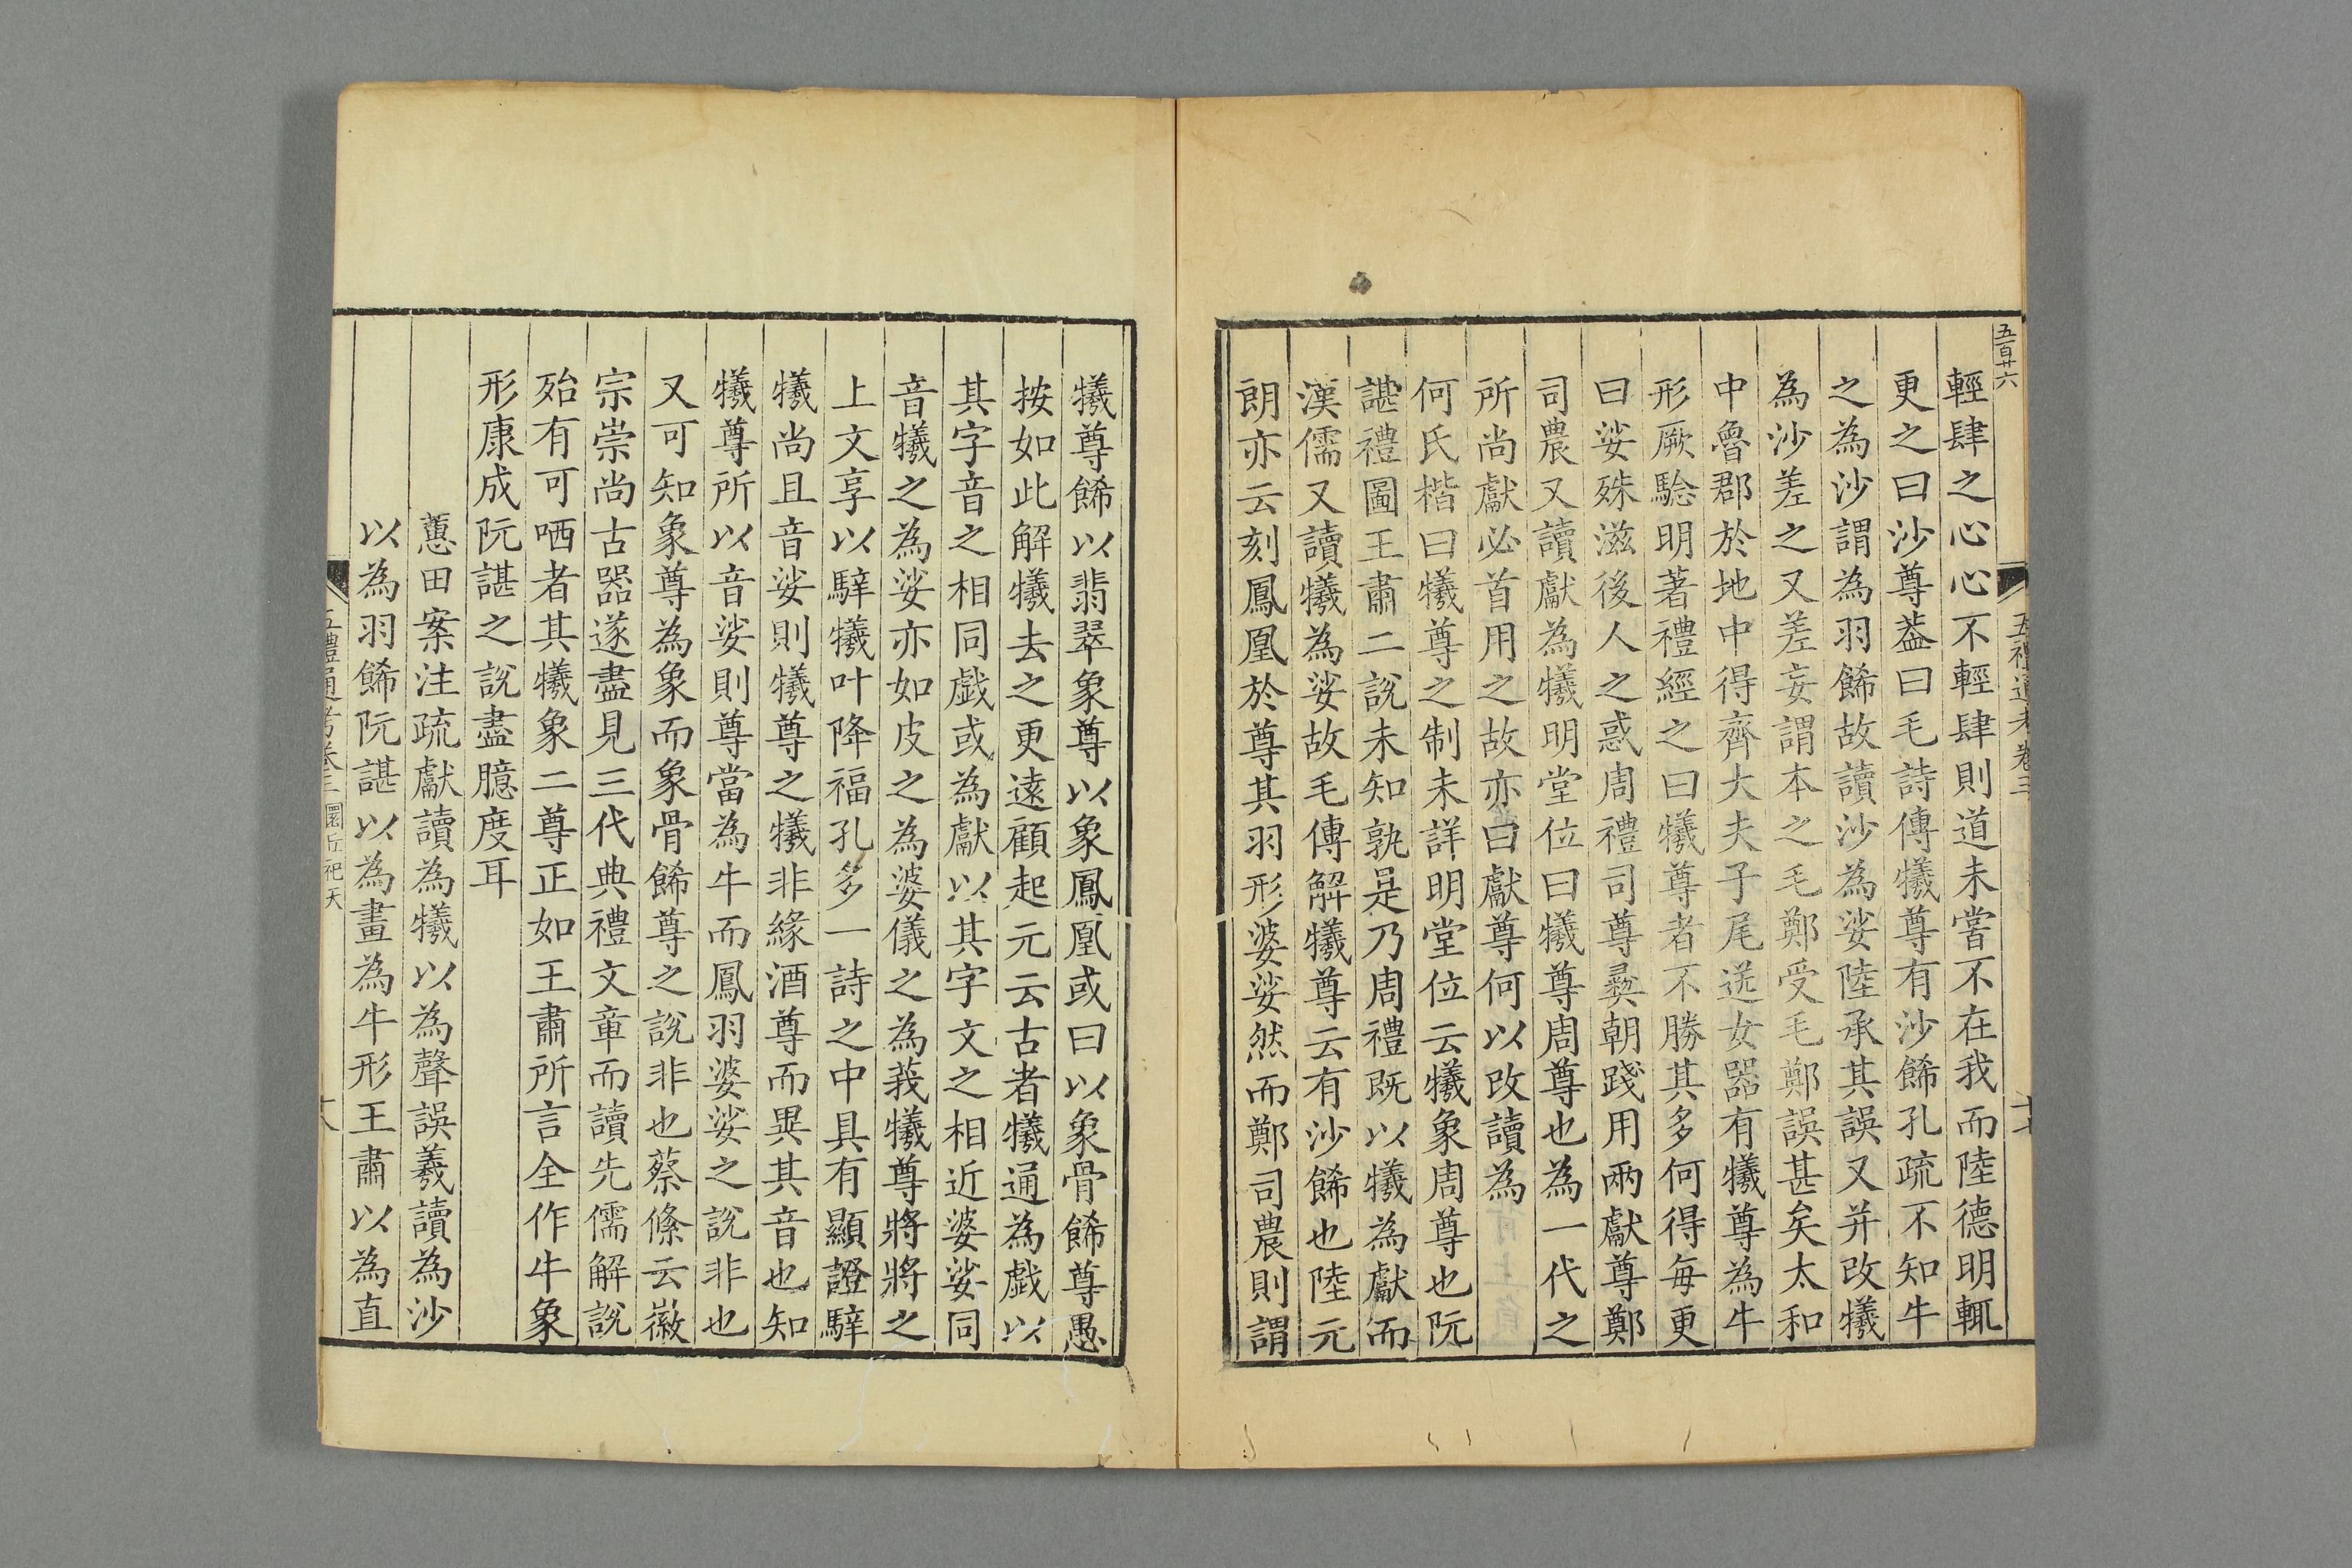 五百廿六
五禮通考卷三
輕肆之心心不輕肆則道未嘗不在我而陸德明輒
更之曰沙尊葢曰毛詩傳犧尊有沙餙孔疏不知牛
之為沙謂為羽餙故讀沙為娑陸承其誤又并改犧
為沙差之又差妄謂本之毛鄭受毛鄭誤甚矣太和
中魯郡於地中得齊大夫子尾送女器有犧尊為牛
形厥騐明著禮經之曰犧尊者不勝其多何得每更
曰娑殊滋後人之惑周禮司尊彝朝踐用兩獻尊鄭
司農又讀獻為犧明堂位曰犧尊周尊也為一代之
所尚獻必首用之故亦曰獻尊何以改讀為
何氏楷曰犧尊之制未詳明堂位云犧象周尊也阮
諶禮圖王肅二說未知孰是乃周禮既以犧為獻而
漢儒又讀犧為娑故毛傳解犧尊云有沙餙也陸元
朗亦云刻鳳凰於尊其羽形婆娑然而鄭司農則謂
犧尊餙以翡翠象尊以象鳳凰或曰以象骨餙尊愚
按如此解犧去之更遠顧起元云古者犧通為戯以
其字音之相同戯或為獻以其字文之相近婆娑同
音犧之為娑亦如皮之為婆儀之為莪犧尊將將之
上文享以騂犧叶降福孔多一詩之中具有顯證騂
犧尚且音娑則犧尊之犧非緣酒尊而異其音也知
犧尊所以音娑則尊當為牛而鳳羽婆娑之說非也
又可知象尊為象而象骨餙尊之說非也蔡絛云徽
宗崇尚古器遂盡見三代典禮文章而讀先儒解說
殆有可哂者其犧象二尊正如王肅所言全作牛象
形康成阮諶之說盡臆度耳
蕙田案注疏獻讀為犧以為聲誤羲讀為沙
以為羽餙阮諶以為畫為牛形王肅以為直
五禮通考卷三 圜丘祀天